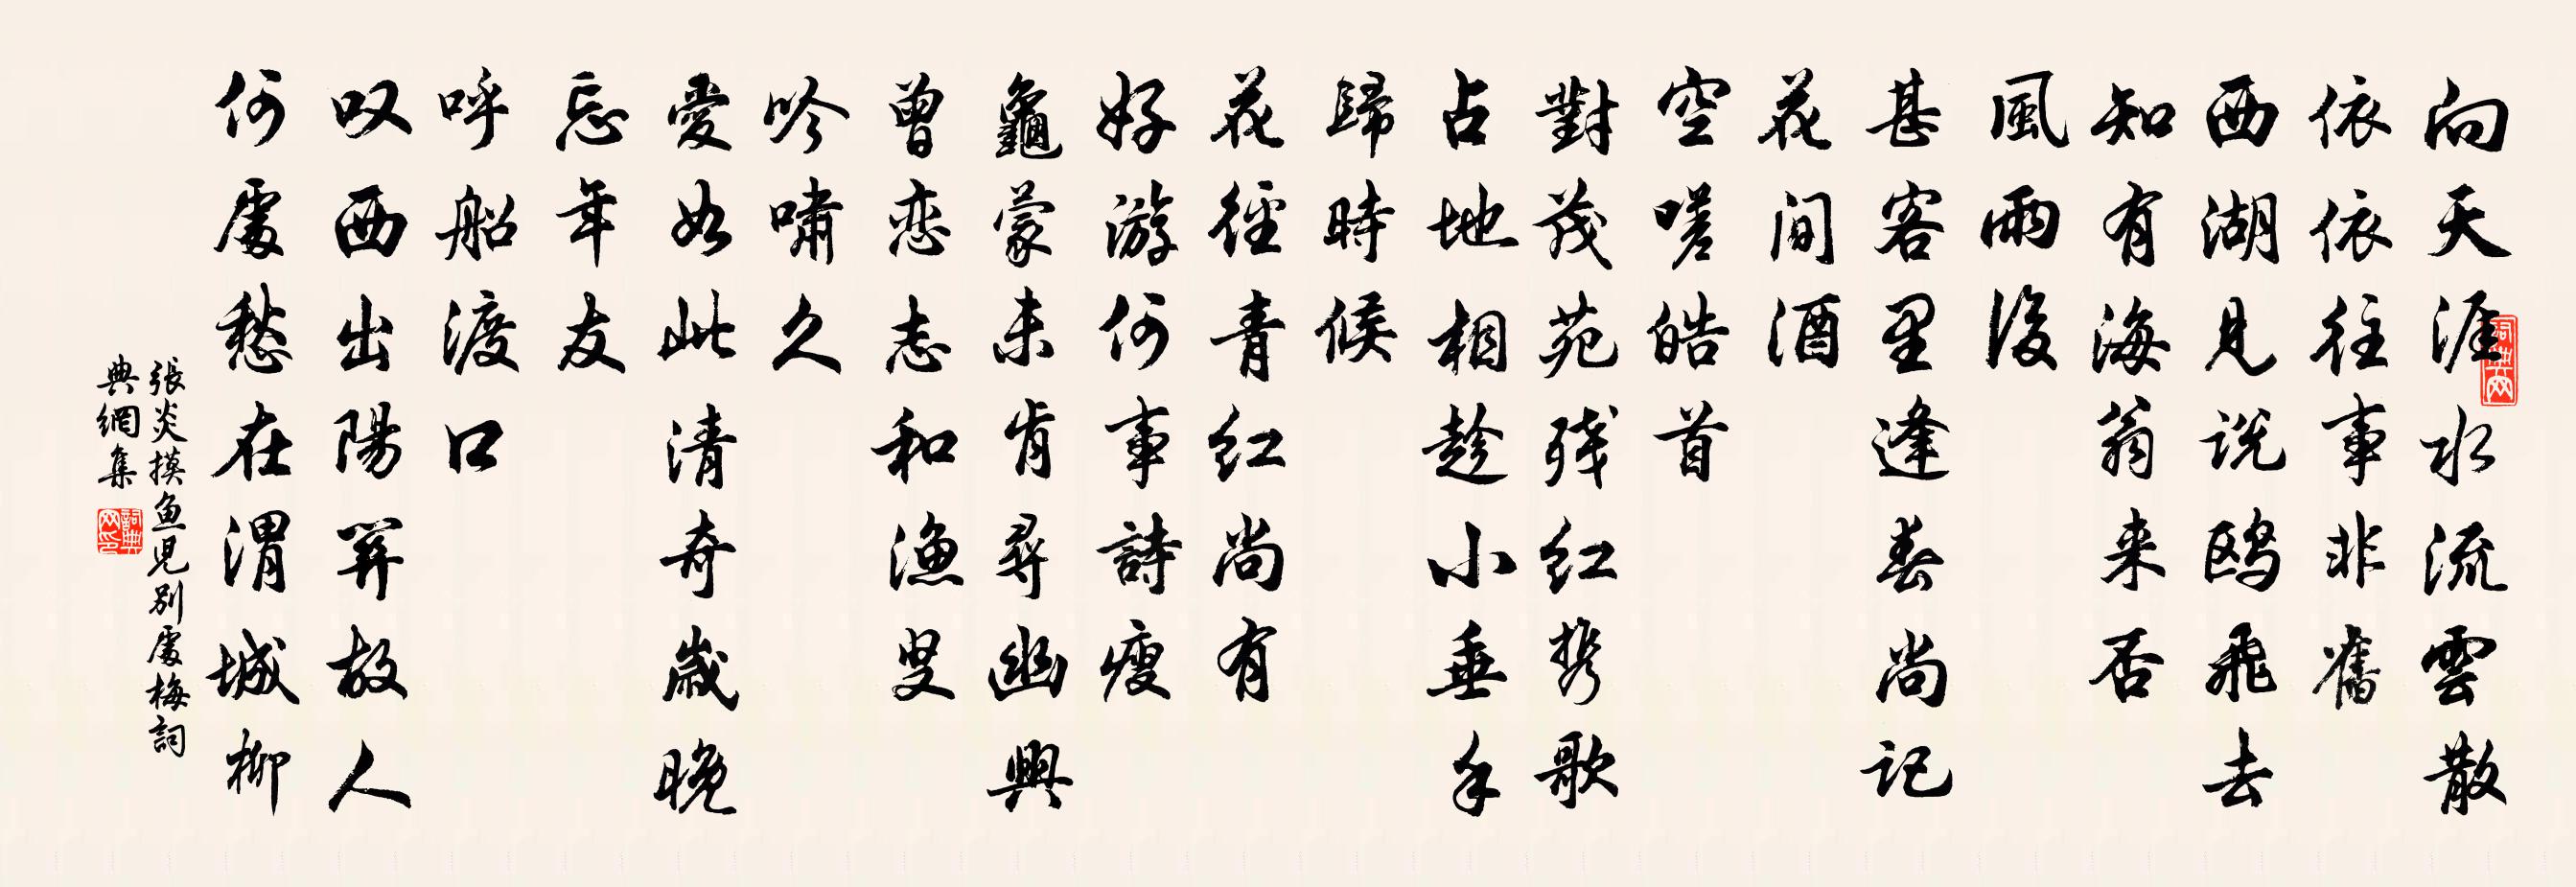 向天涯水流雲散
依依往事非舊
西湖见说鸥飛去
知有海翁来否
風雨後
甚客里逢春尚记
花间酒
空嗟皓首
對茂苑残红携歌
占地相趁小垂手
歸時候
花徑青红尚有
好游何事詩瘦
龜蒙未肯尋幽興
曾恋志和漁叟
吟嘯久
愛如此清奇歲晚
忘年友
呼船渡口
叹西出陽関故人
何處愁在渭城柳
張炎摸鱼児别處梅詞
典網集
词典网
詞典网印